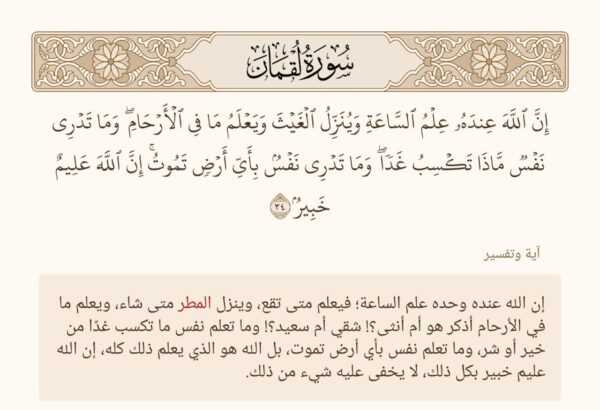 سُورَةُ لُقْمَان
إِنَّ ٱللَّهَ عِندَهُۥ عِلْمُ ٱلسَّاعَةِ وَيُنَزِّلُ ٱلْغَيْثَ وَيَعْلَمُ مَا فِى ٱلْأَرْحَامِ ۖ وَمَا تَدْرِى
نَفْسٌ مَّاذَا تَكْسِبُ غَدًا ۖ وَمَا تَدْرِى نَفْسٌۢ بِأَىِّ أَرْضٍ تَمُوتُ ۚ إِنَّ ٱللَّهَ عَلِيمٌ
خَبِيرٌۢ ٣٤
آية وتفسير
إن الله عنده وحده علم الساعة؛ فيعلم متى تقع، وينزل المطر متى شاء، ويعلم ما
في الأرحام أذكر هو أم أنثى؟! شقي أم سعيد؟! وما تعلم نفس ما تكسب غدًا من
خير أو شر، وما تعلم نفس بأي أرض تموت، بل الله هو الذي يعلم ذلك كله، إن الله
عليم خبير بكل ذلك، لا يخفى عليه شيء من ذلك.